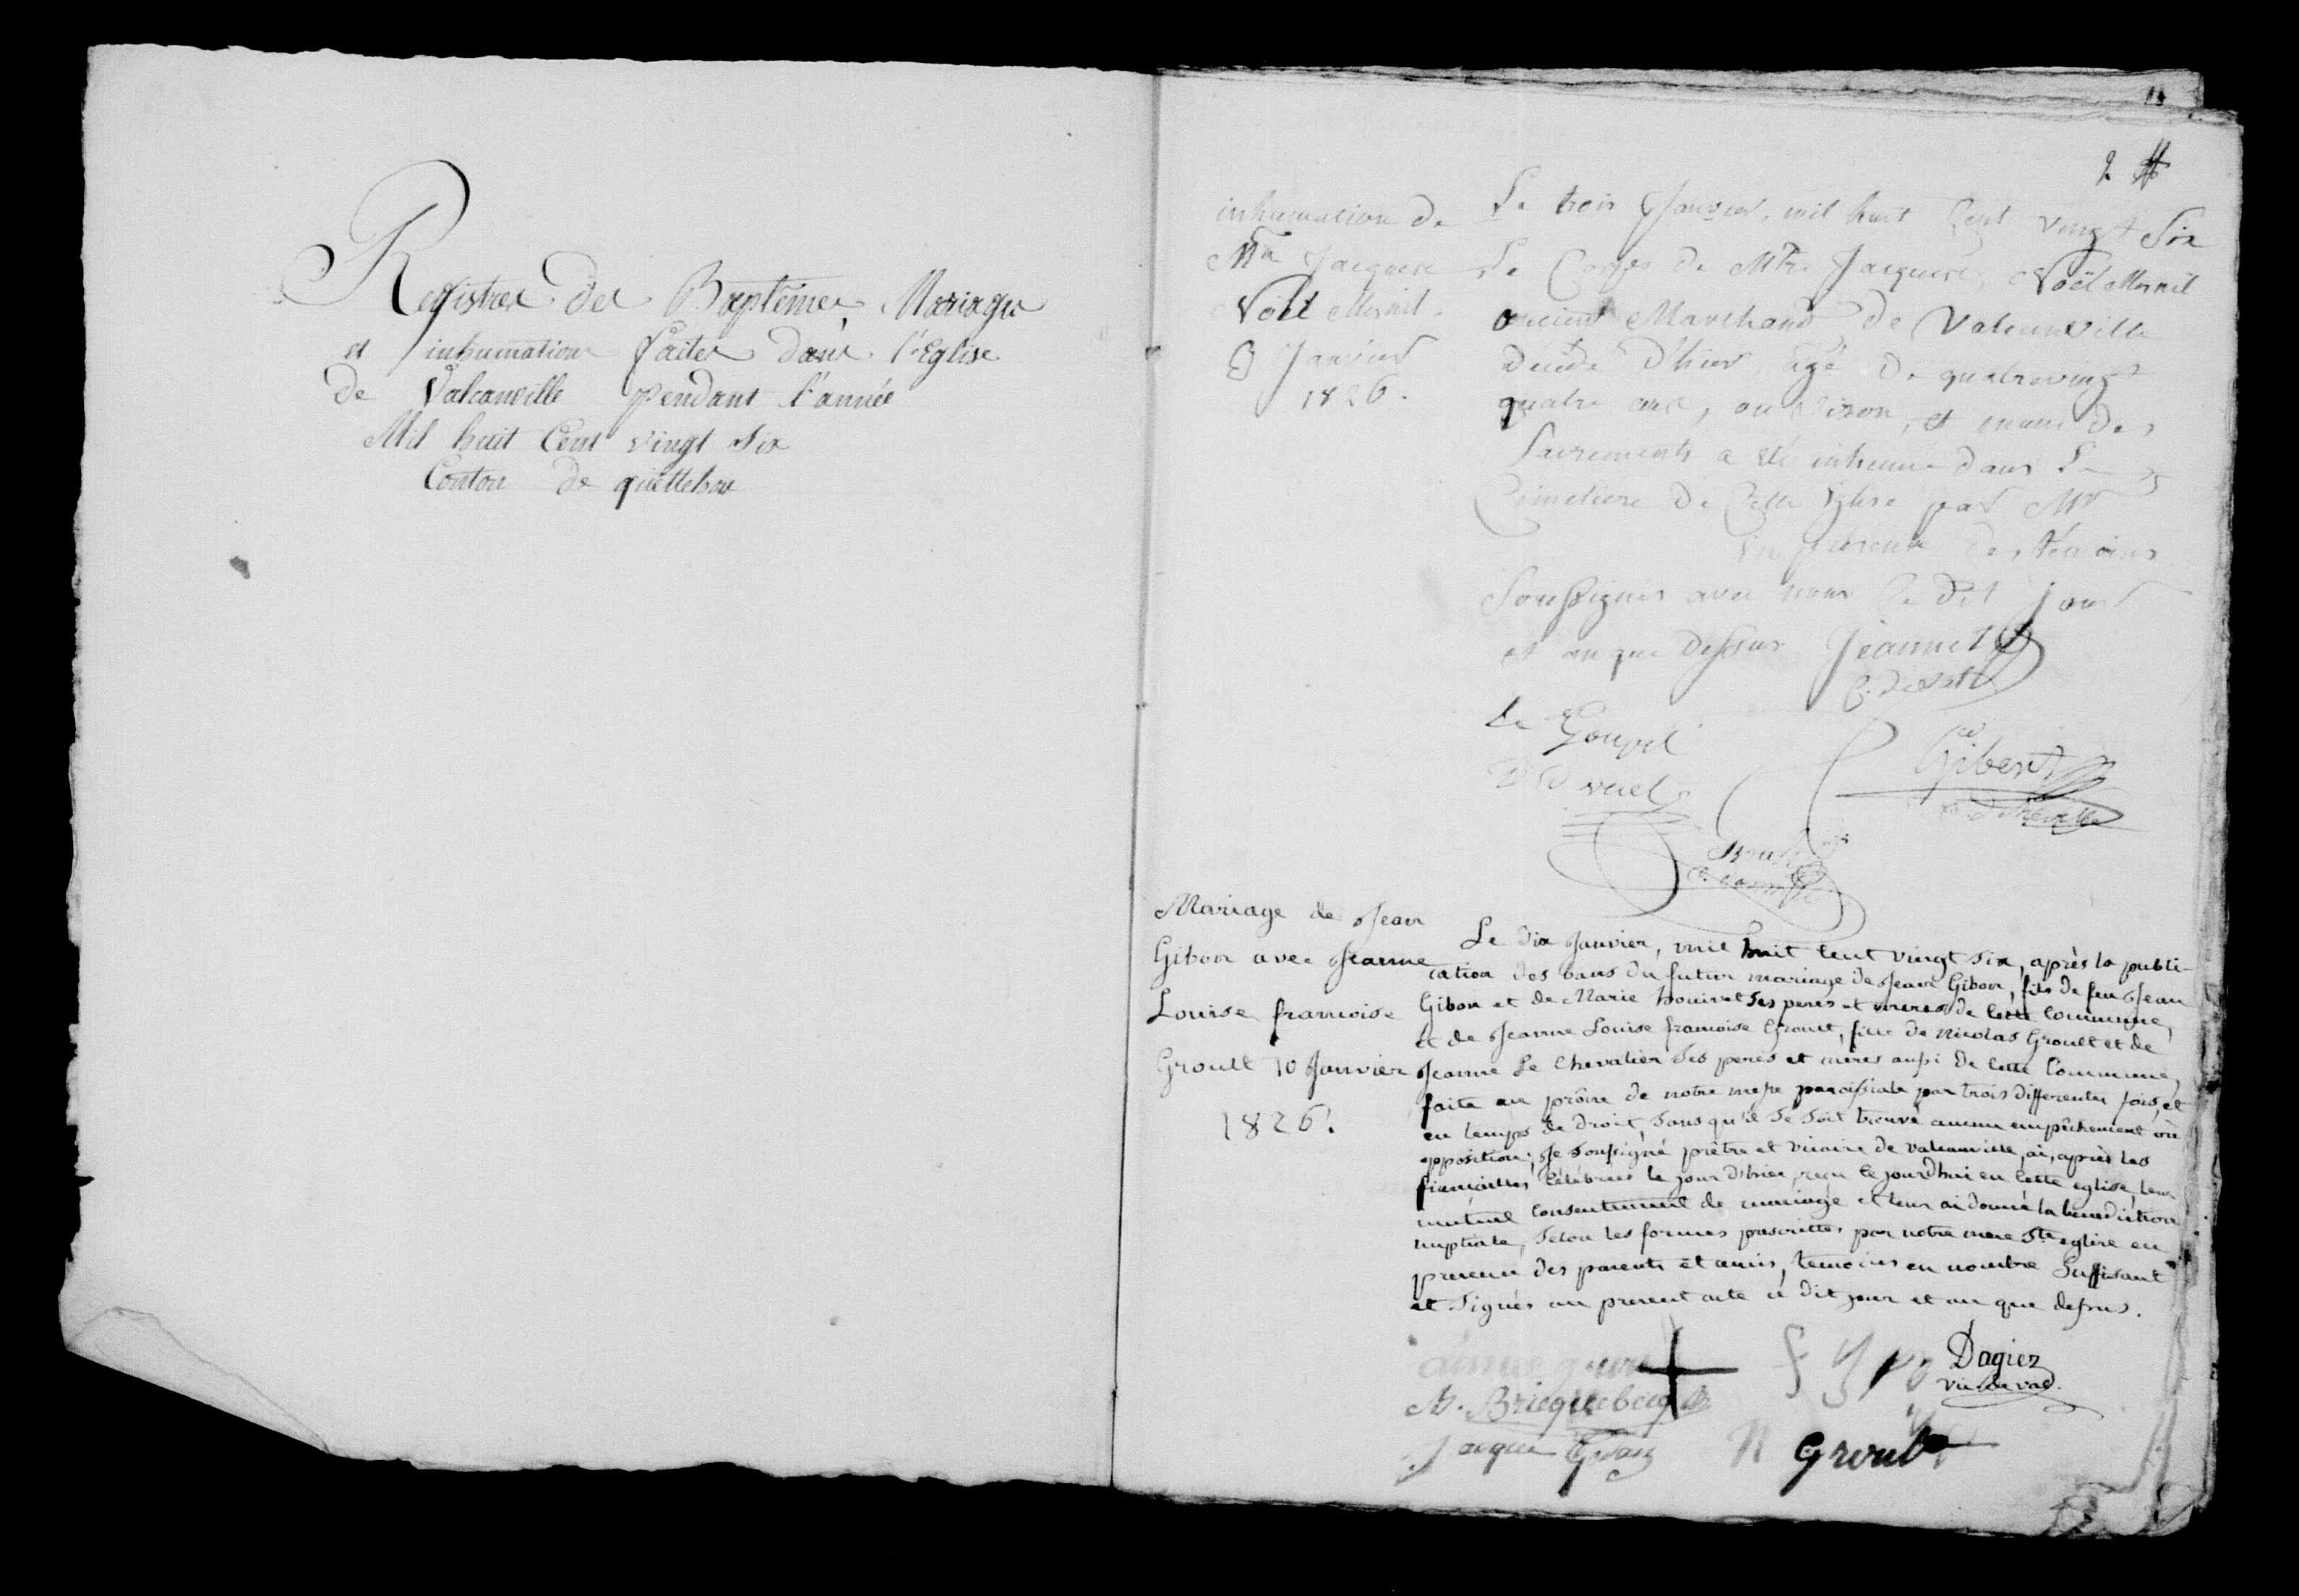 Registres des Baptêmes, Mariages
et inhumations faites dans l'Eglise
de Valcanville pendant l'année
Mil huit Cent vingt Six
Conton de quettehou
2
inhumation de
Mtre Jacques
Noël Mesnil.
3 Janvier
1826.
Le trois Janvier, mil huit Cent vingt Six
Le Corps de Mtre Jacques Noël Mesnil
ancient Marchand de Valcanville
décédé d'hier, agé de quatrevingt
quatre ans, ou viron, et muni des
Sacrements a été inhumé dans Le
Cimetiere de Cette Eglise par Mr
en présence des témoins
Soussignés avec nous Ce dit Jour
et an que dessus Jeannet
C. de Val
Le Goupil
Gibert
Mariage de Jean
Gibon avec Jeanne
Louise francoise
Groult 10 Janvier
1826.
Le dix Janvier, mil huit cent vingt six, après la publi-
cation des bans du futur mariage de Jean Gibon, fils de feu Jean
Gibon et de Marie houivet ses peres et meres de cette Commune,
et de Jeanne Louise francoise Groult, fille de Nicolas Groult et de
Jeanne Le Chevalier ses peres et mères aussi de cette Commune,
faite au prône de notre messe paroissiale par trois differentes fois, et
en temps de droit, sans qu'il se soit trouvé aucun empêchement ou
opposition; Je soussigné prêtre et vicaire de valcanville, ai, après les
fiancailles célébrées le jour d'hier, reçu ce jourd'hui en cette eglise, leur
mutuel consentement de mariage et leur ai donné la benediction
nuptiale, selon les formes prescrittes par notre mere Ste eglise en
presence des parents et amis, temoins en nombre Suffisant
et signés au present acte ce dit jour et an que dessus.
Dagiez
vic de val.
M. Bricquebecq
Jacque Gibon
N Groult